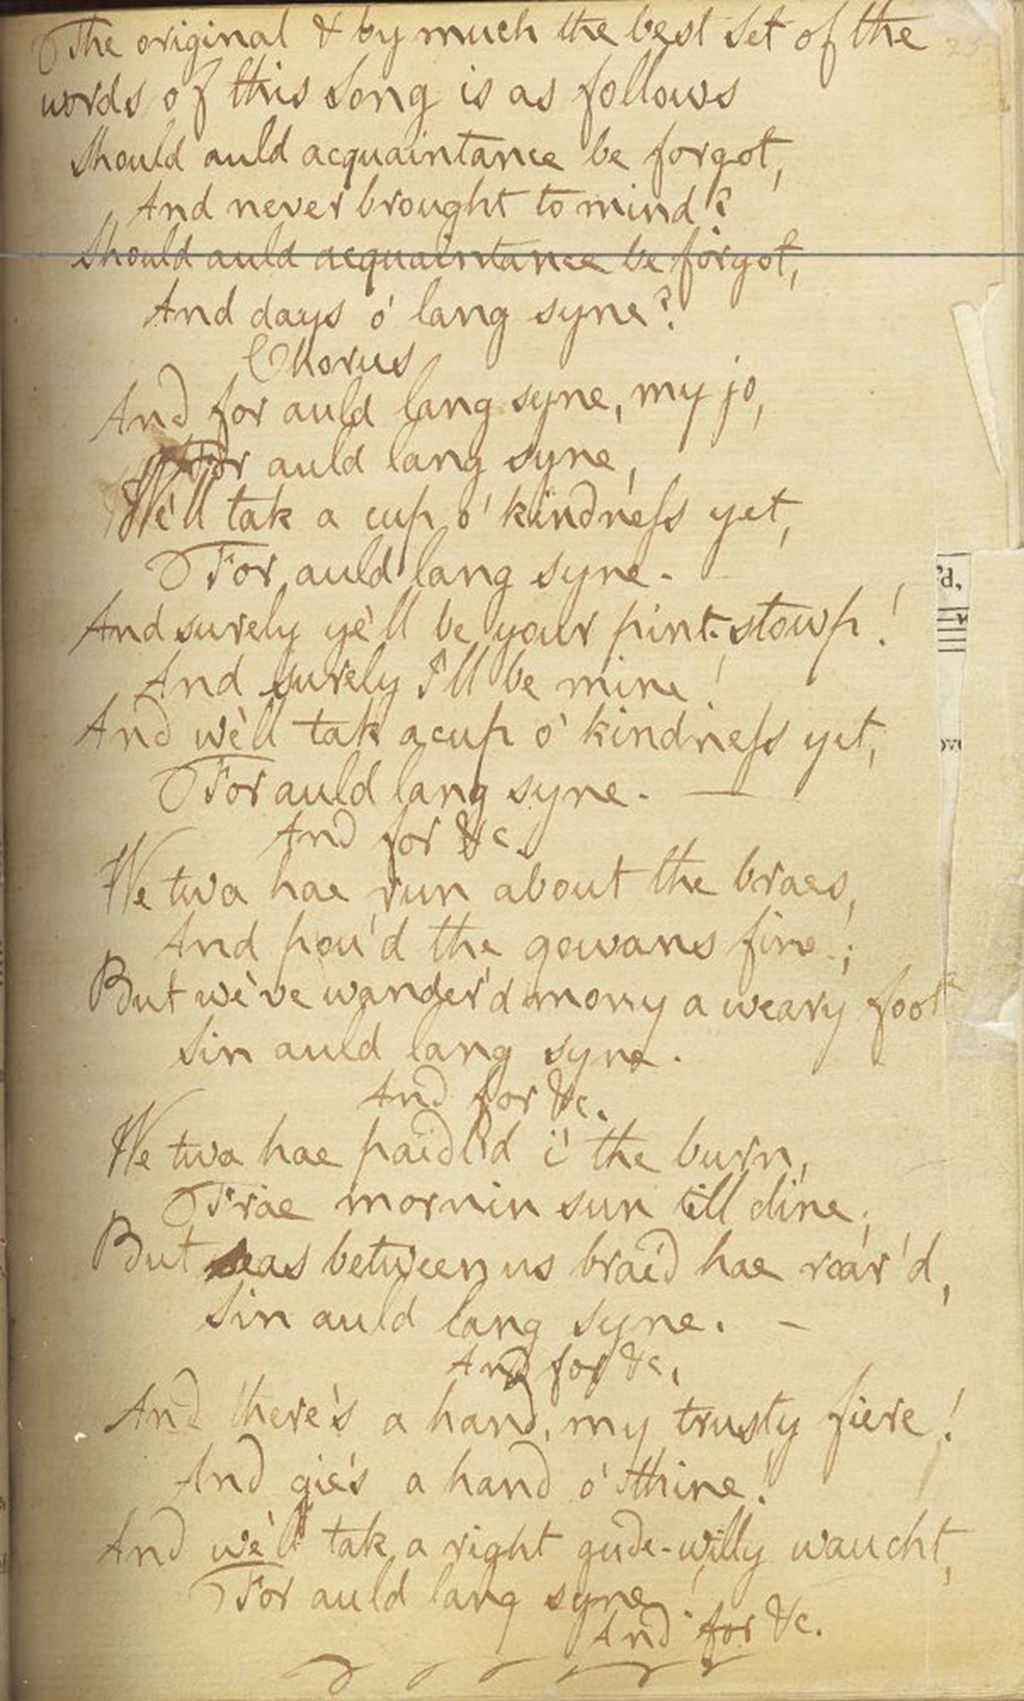 The original & by much the best set of the
words of this song is as follows
Should auld acquaintance be forgot,
And never brought to mind?
Should auld acquaintance be forgot,
And days o' lang syne?
Chorus
And for auld lang syne, my jo,
For auld lang syne,
We'll tak a cup o' kindneſs yet,
For auld lang syne.
And surely ye'll be your pint-stowp!
And surely I'll be mine!
And we'll tak a cup o' kindneſs yet,
For auld lang syne. —
And for &c.
We twa hae run about the braes,
And pou'd the gowans fine;
But we've wander'd mony a weary foot
Sin auld lang syne.
And for &c.
We twa hae paidl'd i' the burn,
Frae mornin sun till dine;
But seas between us braid hae roar'd,
Sin auld lang syne. —
And for &c.
And there's a hand, my trusty fiere!
And gie's a hand o' thine!
And we'll tak a right gude-willy waucht,
For auld lang syne
And for &c.
'd,